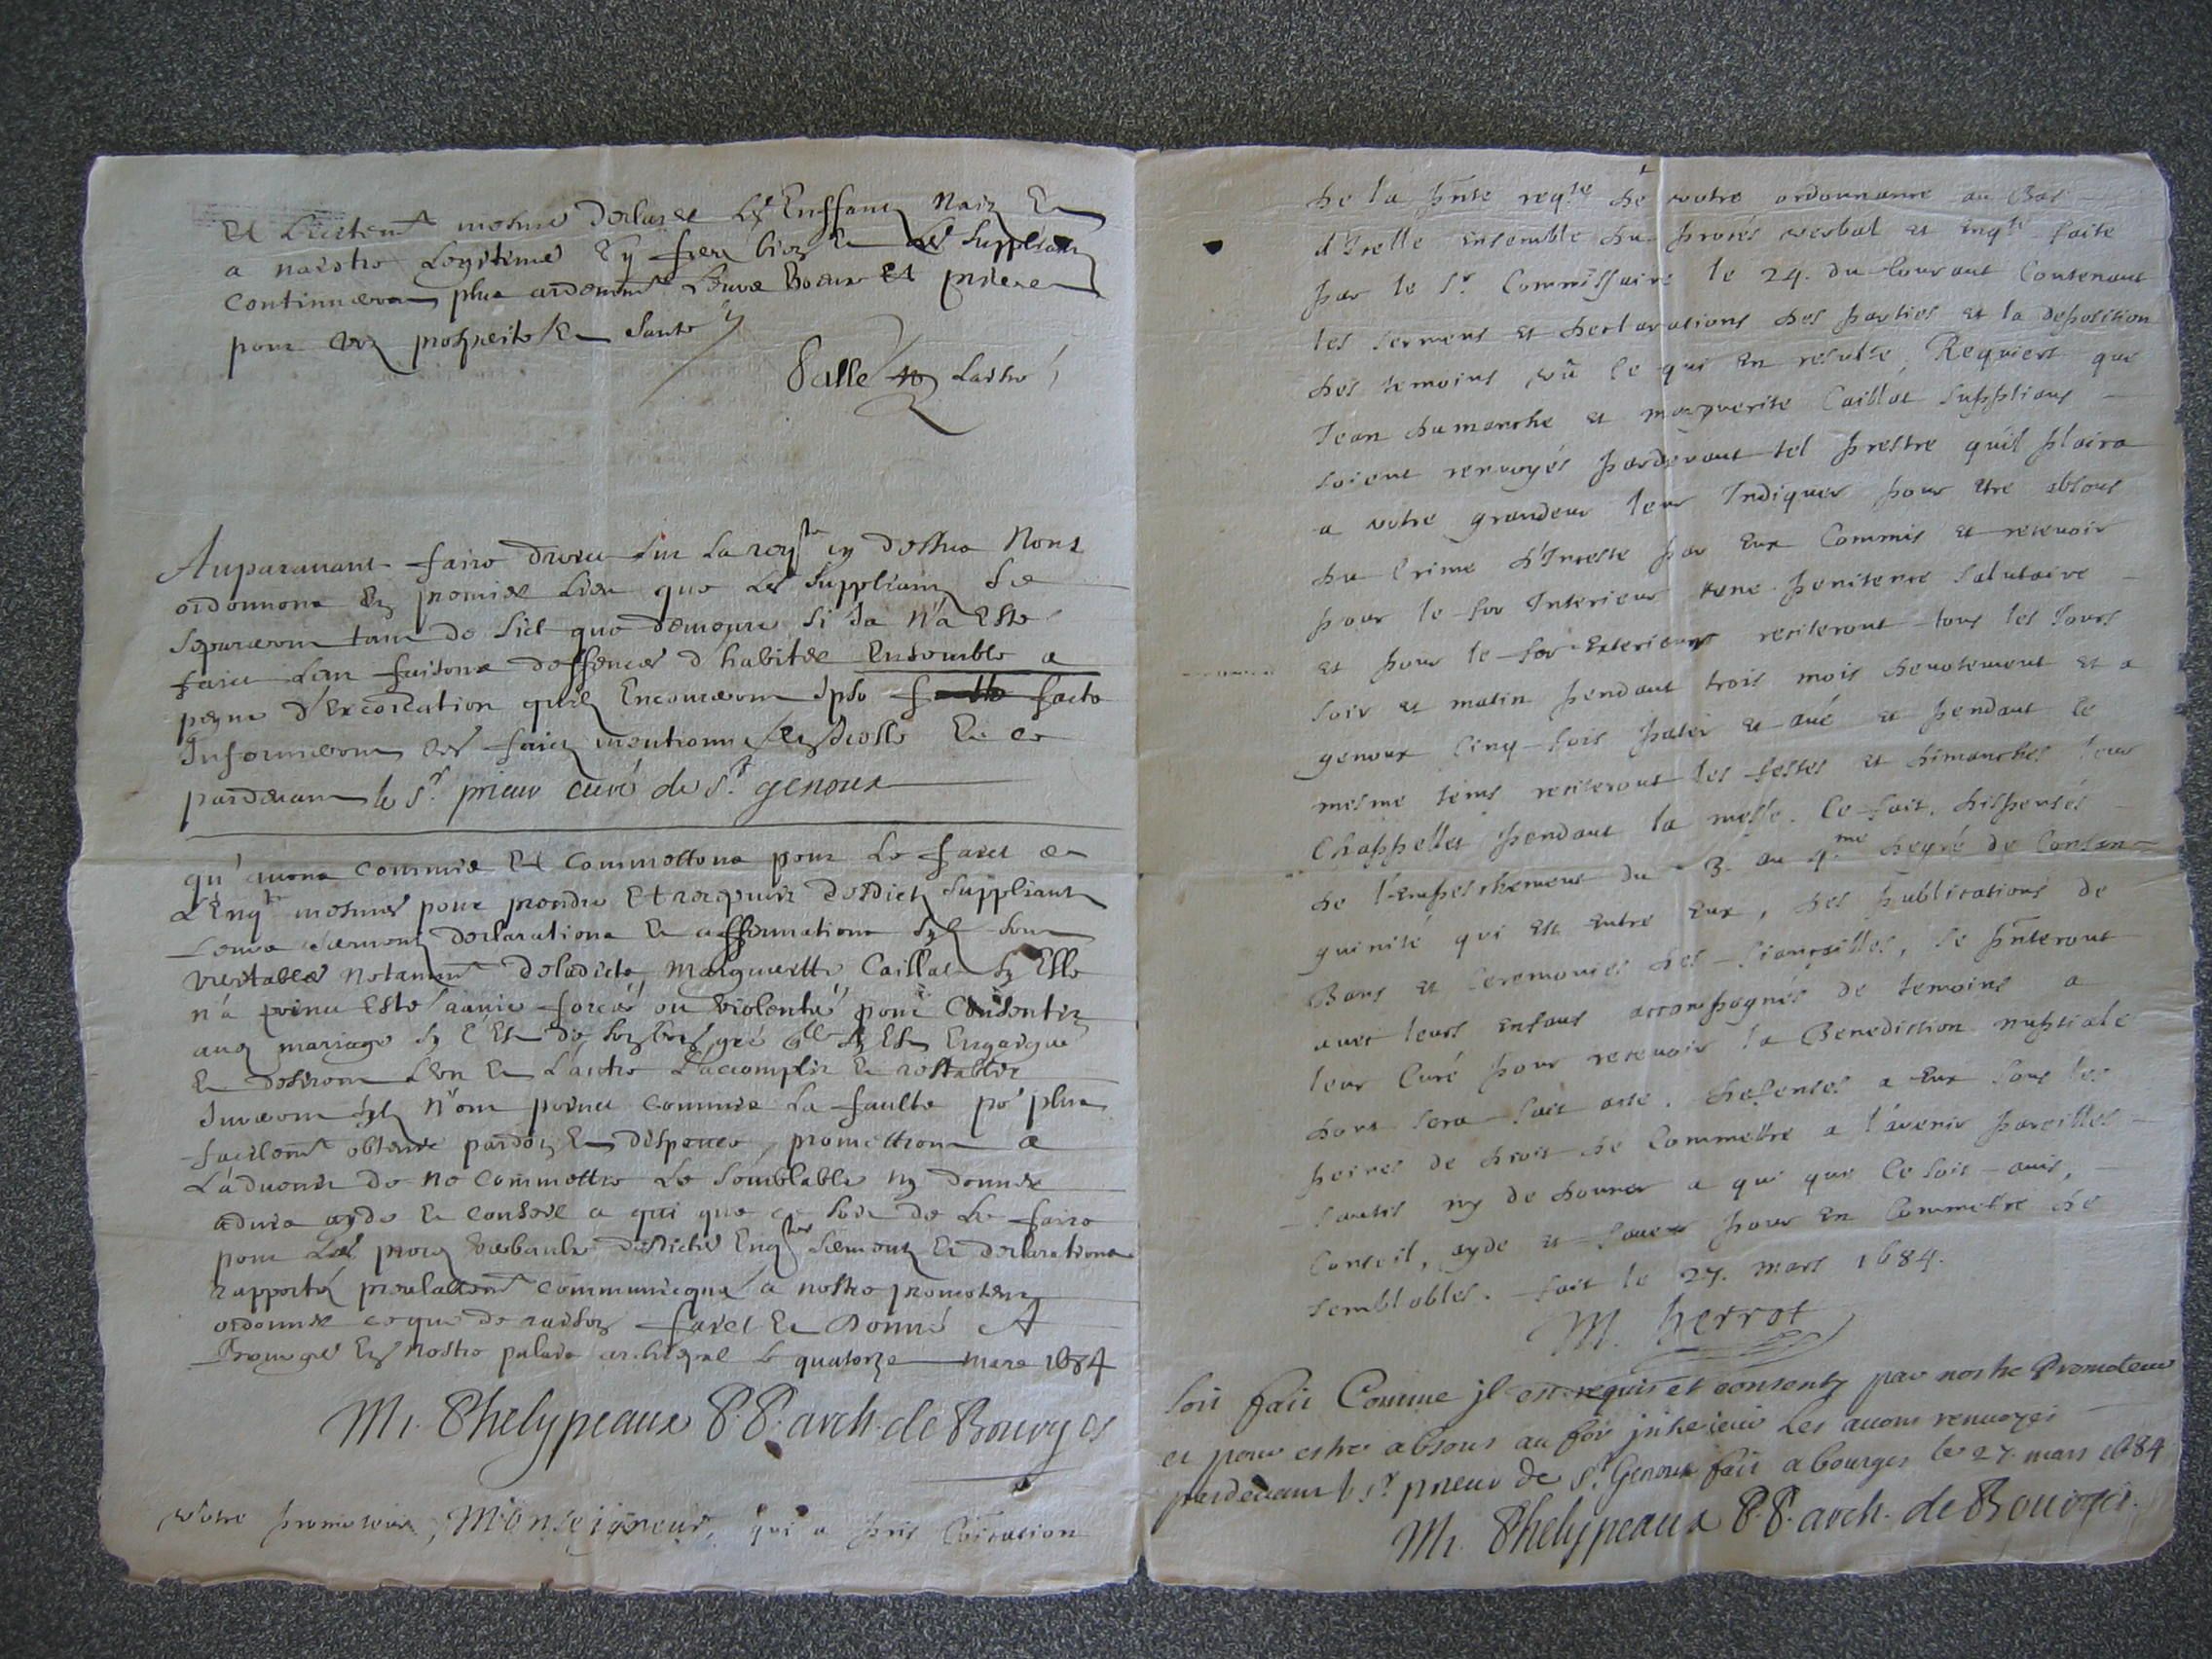 Et mesme declarer Les Enffans Naiz Et
a naistre Legitimes Sy ferez bien Et Les Supplians
continueront plus ardemmt Leurs voeux Et prieres
pour vre prosperité Et santé
Auparavant faire droict sur La reqte cy dessus Nous
ordonnons En premier Lieu que Les Supplians se
separeront tant de Lict que demeure si Ja n'a Esté
faict Leur faisons deffences d'habiter Ensemble a
peyne d'Excoication qu'ils Encoureront Ipso facto
Informeront des faicts mentionnés En Icelle Et ce
pardevant le Sr. prieur curé de St. genoux
qu'avons commis Et commettons pour Le faict de
L'Enqte mesmes pour prendre Et recepvoir desdicts Suppliants
Leurs sermens declarations Et affirmations s'ils sont
veritables notamment de ladicte Margueritte Caillat sy Elle
n'a point Esté ravie forcée ou violentée pour Consentir
aud mariage sy c'Est de son bon gré qlle s'y Est Engaigée
Et desirent L'un Et L'autre L'accomplir Et restablir
Jureront s'ils N'ont point commis La faulte po' plus
facilemt obtenir pardon Et dispence, promettront a
L'advenir de ne Commettre Le semblable ny donner
advis ayde Et conseil a qui que ce soit de Le faire
pour Les proces verbaulx desdictes Enqtes sermens Et declarations
rapportés prealablemt communicqués a nostre promoteur
ordonner ce que de raison faict Et Donné A
Bourges En nostre palais archiepal Le quatorze mars 1684
Mi. Phelypeaux P. P. arch. de Bourges
Votre promoteur, Monseigneur, qui a pris Coication
de la pnte reqte de votre ordonnance au Bas
d'Icelle Ensemble du procés verbal et enqte faite
par le Sr. Commissaire le 24. du Courant Contenant
les sermens et declarations des parties et la deposition
des temoins vû ce qui en resulte, Requiert que
Jean dumanche et marguerite Caillat supplians
soient renvoyés pardevant tel prestre qu'il plaira
a votre grandeur leur Indiquer pour etre absous
du Crime d'Inceste par eux Commis et recevoir
pour le for Interieur une penitence salutaire
et pour le for Exterieur reciteront tous les Jours
soir et matin pendant trois mois devotement et a
genoux Cinq fois pater et avé et pendant le
mesme tems reciteront les festes et dimanches leur
Chappellet pendant la messe. Ce fait, dispensés
de l'Empeschement du 3. au 4.me degré de Consan-
guinité qui est entre eux, des publications de
Bans et Ceremonies des fiançailles, se pnteront
avec leurs enfans accompagnés de temoins a
leur Curé pour recevoir la Benediction nuptiale
dont sera fait acte. defenses a eux sous les
peines de droit de Commettre a l'avenir pareilles
fautes ny de donner a qui que ce soit avis,
Conseil, ayde et faveur pour en Commettre de
semblables. fait le 27. mars 1684.
M. perrot
Soit fait Comme jl est requis et consenty par nostre Promoteur
et pour estre absous au for jnterieur Les avons renvoyés
pardevant le Sr. prieur de St. Genoux fait a bourges le 27. mars 1684
Mi. Phelypeaux P. P. arch. de Bourges.